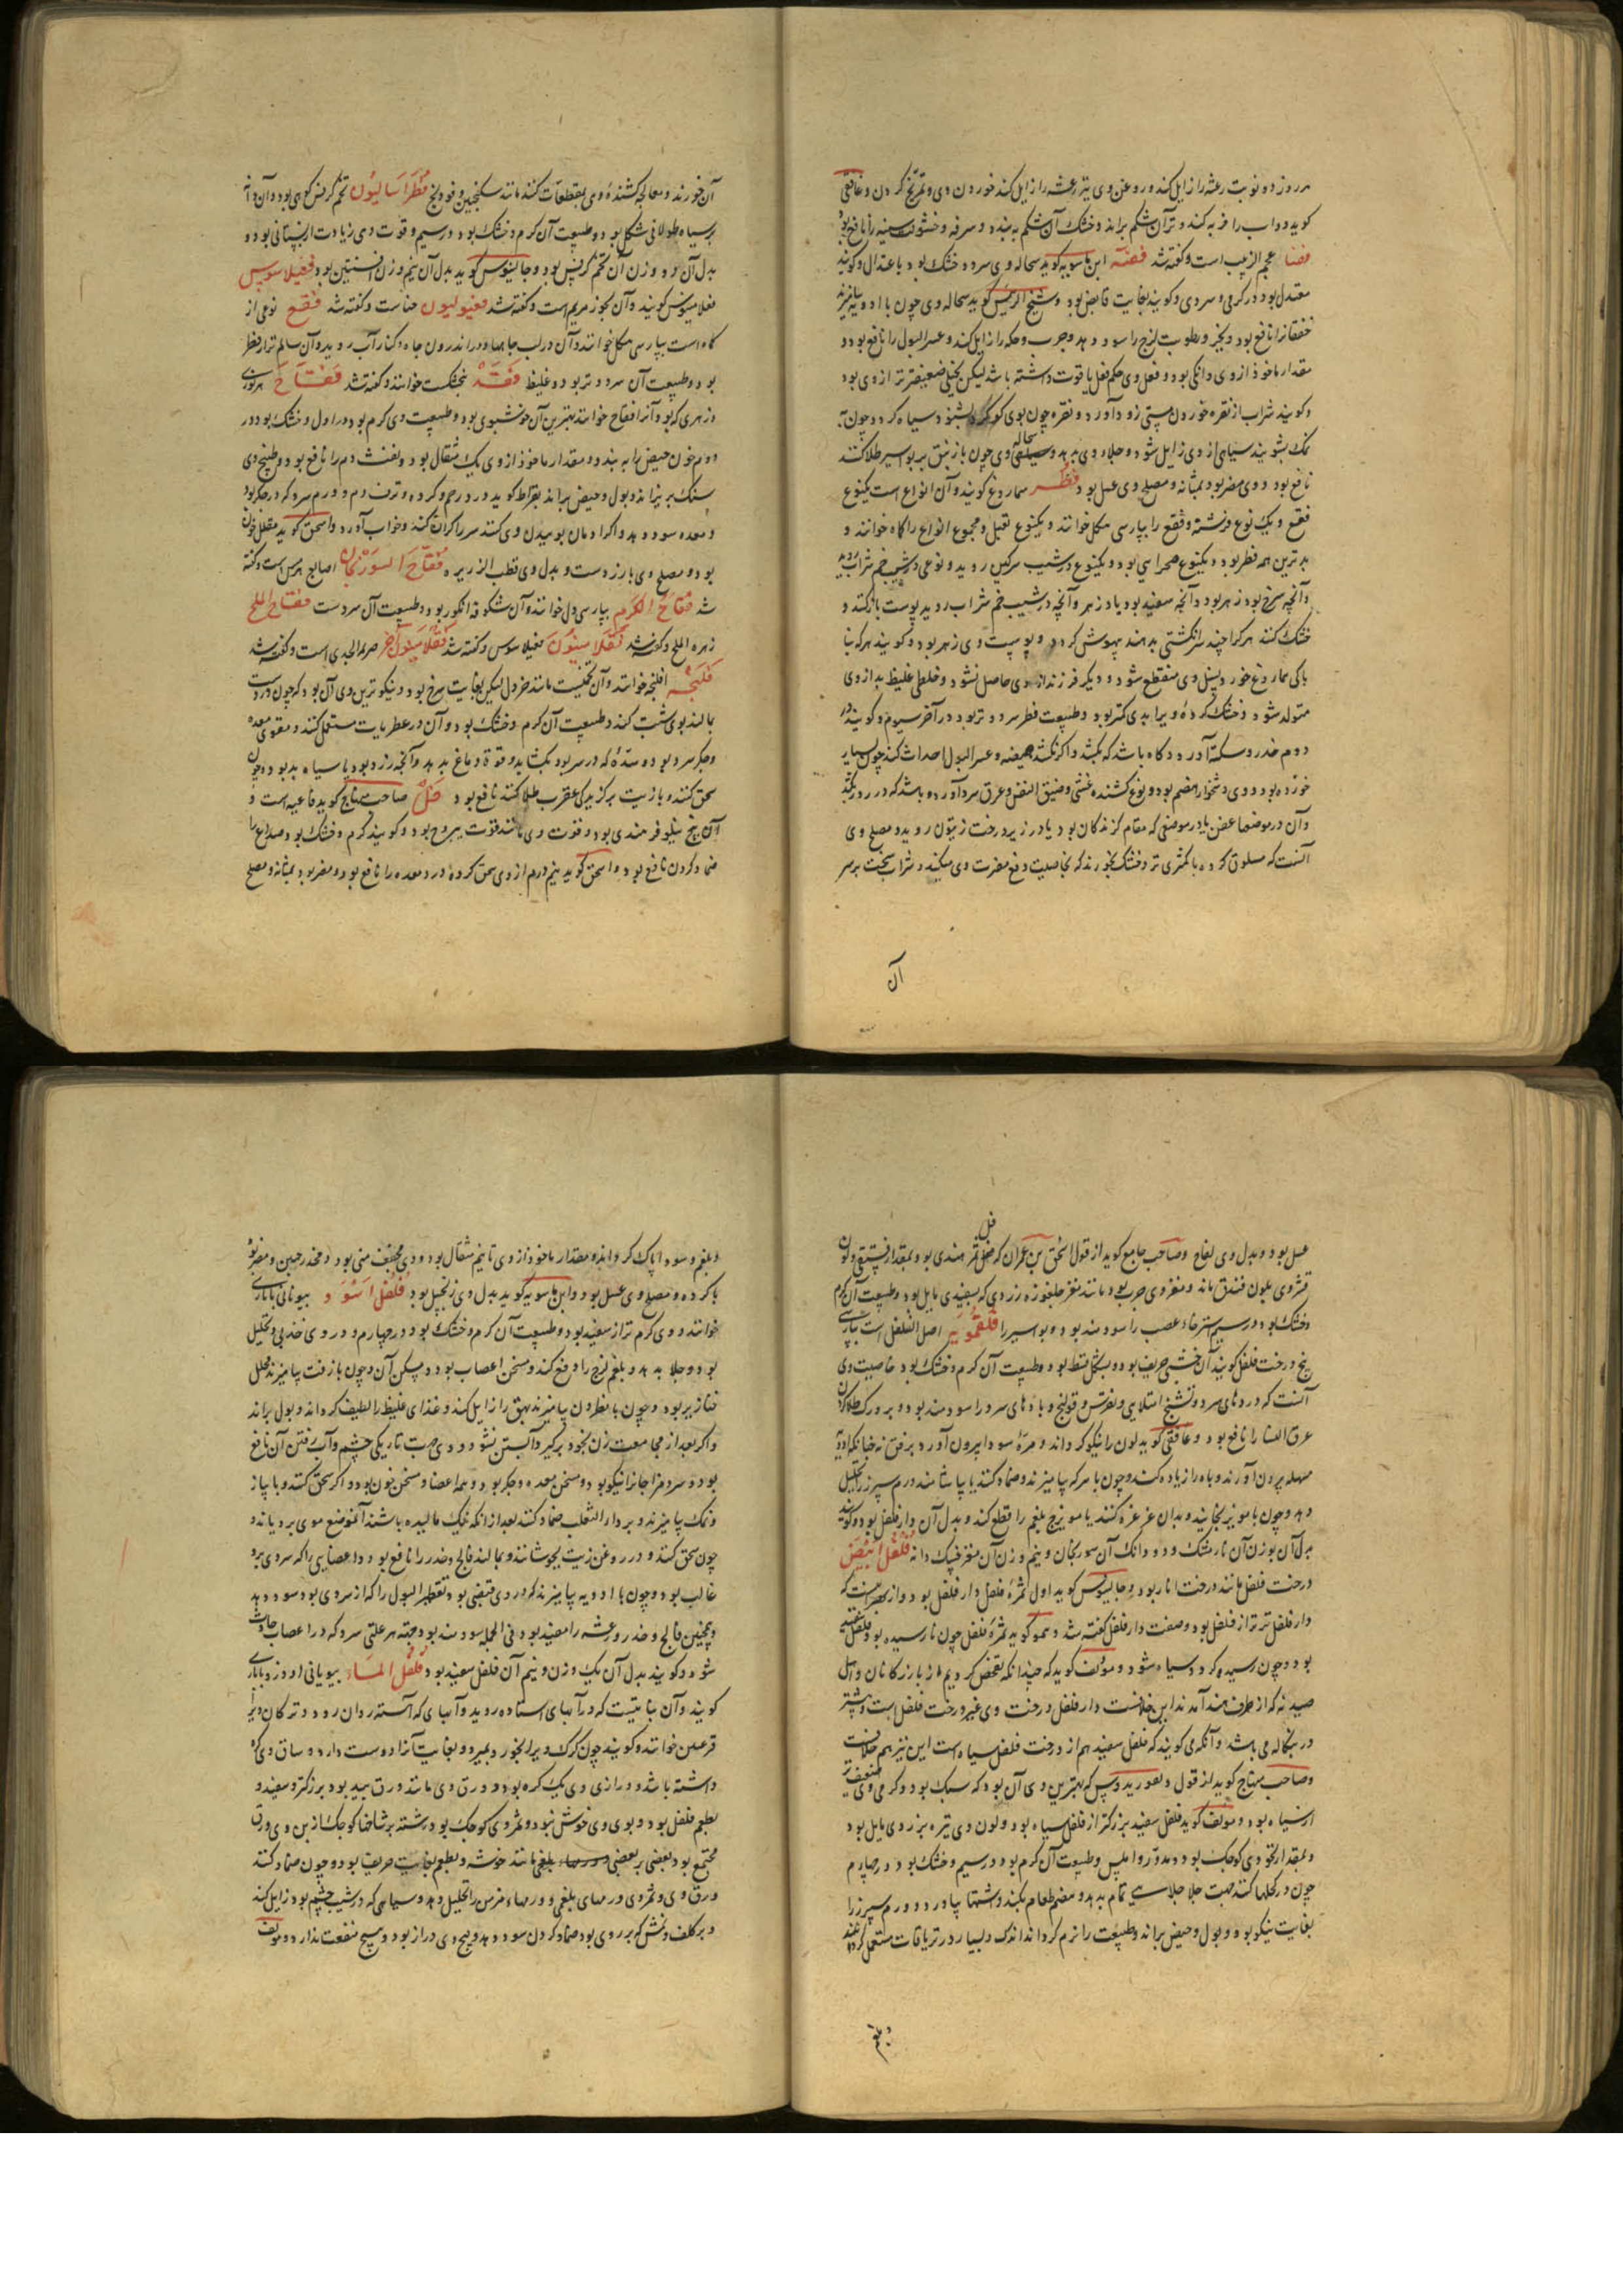 هر روز دو نوبت رعشه را زایل کند و روغن وی نیز رعشه را زایل کند خوردن وی و تمریخ کردن و غافقی
گوید دواب را فربه کند و تر آن شکم براند و خشک آن شکم به بندد و سرفه و خشونت سینه را نافع بود
فضا عجم الزبیب است و گفته شد فضه ابن ماسویه گوید سحاله وی سرد و خشک بود باعتدال و گویند
معتدل بود در گرمی و سردی و گویند بغایت قابض بود و شیخ الرئیس گوید سحاله وی چون با ادویه بیامیزند
خفقانرا نافع بود و بخر و رطوبت لزج را سود دهد و جرب و حکه را زایل کند و عسر البول را نافع بود و
مقدار ماخوذ از وی دانکی بود و فعل وی حکم فعل یاقوت داشته باشد لیکن بخیلی ضعیفتر از وی بود
و گویند شراب از نقره خوردن مستی زود آورد و نقره چون بوی کوکرد بشنود سیاه کردد چون به
نمک بشویند سیاهی از وی زایل شود و جلا وی بدهد و سحاله وی چون با زیبق بر بواسیر طلا کنند
نافع بود و وی مضر بود بمثانه و مصلح وی عسل بود فطر سماروغ گویند و آن انواع است یکنوع
فقع و یک نوع فرشته و فقع را بپارسی هکل خوانند و یکنوع نقیل و مجموع انواع را کاه خوانند و
بدترین همه فطر بود و یکنوع صحرایی بود و یکنوع در شیب سرکین روید و نوعی در شیب خم شراب روید
و آنچه سرخ بود زهر بود و آنچه سفید بود یاد زهر و آنچه در شیب خم شراب روید پوست باز کنند و
خشک کنند هرکرا چند سر انکشتی بدهند بیهوش کردد و پوست وی زهر بود و گویند هرکه بنا
باکی سماروغ خورد نسل وی منقطع شود و دیگر فرزند از وی حاصل نشود و خلطی غلیظ بد از وی
متولد شود و خشک کرده ویرا بدی کمتر بود و طبیعت فطر سرد و تر بود در آخر سیوم و گویند در
دوم خدر و سکته آورد و کاه باشد که بکشد و اکر نکشد هیضه و عسر البول احداث کند چون بسیار
خورده بود و وی دشخوار هضم بود و نوع کشنده غشی و ضیق النفس و عرق سرد آورد و باشد که در روز بکشد
و آن در موضعها عفن یا در موضعی که مقام کزندکان بود یا در زیر درخت زیتون روید و مصلح وی
آنست که مسلوق کرده با کمثری تر و خشک بخورند که بخاصیت دفع مضرت وی میکند و شراب سخت بر سر
آن
آن خورند و معالجه کشندۀ وی بمقطعات کنند مانند سکنجبین و فودنج فطراسالیون تخم کرفس کوهی بود و آن دانه
بر سیاه طولانی شکل بود و طبیعت آن گرم و خشک بود در سیم و قوت وی زیادت از بستانی بود و
بدل آن دو وزن آن تخم کرفس بود و جالینوس گوید بدل آن نیم وزن افسنتین بود فغیلاسوس
فغلامینوس گویند و آن بخور مریم است و گفته شد فغیولیون حناست و گفته شد فقع نوعی از
کاه است بپارسی هکل خوانند و آن در لب جامها و در اندرون جاه و کنار آب روید و آن سالم تر از فطر
بود و طبیعت آن سرد و تر بود و غلیظ فقد بنجنکشت خوانند و گفته شد فقاح هر نوری
و زهری که بود آنرا فقاح خوانند بهترین آن خوشبوی بود و طبیعت وی گرم بود در اول و خشک بود در
دوم خون حیض را به بندد و مقدار ماخوذ از وی یک مثقال بود و نفث دم را نافع بود و طبیخ وی
سنک بریزاند و بول و حیض براند بقراط گوید درد رحم و کرده و نزف دم و ورم سرد که در جکر بود
و معده سود دهد و اکر ادمان بوییدن وی کنند سر را کران کند و خواب آورد و اسحق گوید مقلل خون
بود و مصلح وی بارزدست و بدل وی قصب الذریره فقاح السورنجان اصابع هرمس است و گفته
شد فقاح الکرم بپارسی دل خوانند و آن شکوفه انکور بود و طبیعت آن سردست فقاح الملح
زهره الملح و گفته شد فقلامینون فغیلاسوس و گفته شد فقلامینون آخر صریمه الجدی است و گفته شد
فلنجه افلنجه خوانند و آن تخمیست مانند خردل لیکن بغایت سرخ بود و نیکوترین وی آن بود که چون در دست
بمالند بوی شت کند و طبیعت آن گرم و خشک بود و آن در عطریات مستعمل کنند و مقوی معده
و جکر سرد بود و سدۀ که در سر بود بکشاید و قوة دماغ بدهد و آنچه زرد بود یا سیاه بد بود و چون
سحق کنند و با زیت بر کزیدکی عقرب طلا کنند نافع بود فل صاحب منهاج گوید فاغیه است و
آن بیخ نیلوفر هندی بود و قوت وی مانند قوت یبروح بود و گویند گرم و خشک بود صداع را
ضماد کردن نافع بود و اسحق گوید نیم درم از وی سحق کرده درد معده را نافع بود و مضر بود بمثانه و مصلح
عسل بود و بدل وی لفاح و صاحب جامع گوید از قول اسحق بن عمران که فل ثمر هندی بود بمقدار فستقی و لون
قشر وی بلون فندق ماند و مغز وی چرب بود مانند مغز جلغوزه زردی که بسفیدی مایل بود و طبیعت آن گرم
و خشک بود در سیم استرخاء عصب را سودمند بود و بواسیر را فلفمویه اصل الفلفل است بپارسی
بیخ درخت فلفل گویند آن خشبی حریف بود و بشکل قسط بود و طبیعت آن گرم و خشک بود خاصیت وی
آنست که دردهای سرد و تشنج امتلایی و نقرس و قولنج و بادهای سرد را سودمند بود و بر ورک طلا کردن
عرق النسا را نافع بود و غافقی گوید لون را نیکو کرداند و مرۀ سودا بیرون آورد برفق نه چنانکه ادویه
مسهله بیرون آورند و باه را زیاده کند و چون با سرکه بیامیزند و ضماد کنند یا بیاشامند ورم سپرز را تحلیل
دهد و چون با مویز بخایند و بدان غرغره کنند یا مویزج بلغم را قطع کند و بدل آن دارفلفل بود و گویند
بدل آن بوزن آن نارمشک و دو دانک آن سورنجان و نیم وزن آن مغز خیسک دانه فلفل ابیض
درخت فلفل مانند درخت انار بود و جالینوس گوید اول ثمرۀ فلفل دارفلفل بود و از بهر اینست که
دارفلفل تر تر از فلفل بود و صفت دارفلفل گفته شد و همو گوید ثمرۀ فلفل چون نارسیده بود فلفل سفید
بود و چون رسیده کردد سیاه شود و مؤلف گوید که چندانکه تفحص کردیم از بازرکانان و اهل
صیدنه که از طرف هند آمدند این خلافست دارفلفل درخت وی غیر درخت فلفل است و بیشتر
در بنکاله می باشد و آنکه می گویند که فلفل سفید هم از درخت فلفل سیاه است این نیز هم خلافست
و صاحب منهاج گوید از قول دیسقوریدوس که بهترین وی آن بود که سبک بود و گرمی وی ضعیف تر
از سیاه بود و مؤلف گوید فلفل سفید بزرکتر از فلفل سیاه بود و لون وی تیره بزردی مایل بود
و بمقدار نخودی کوچک بود و مدور و املس و طبیعت آن گرم بود در سیم و خشک بود در چهارم
چون در کحلها کنند جهت جلا جلاسی تمام بدهد و هضم طعام بکند و اشتها بیاورد و ورم سپرز را
بغایت نیکو بود و بول و حیض براند و طبیعت را نرم کرداند اندک و بسیار در تریاقات مستعمل کردهند
و بلغم
و بلغم و سودا پاک کرداند و مقدار ماخوذ از وی تا نیم مثقال بود و وی مجفف منی بود و مخدر جبین و مضر بود
بکرده و مصلح وی عسل بود و ابن ماسویه گوید بدل وی زنجبیل بود فلفل اسود بیونانی باباری
خوانند و وی گرم تر از سفید بود و طبیعت آن گرم و خشک بود در چهارم و در وی جذبی و تحلیل
بود و جلا بدهد و بلغم لزج را دفع کند و مسخن اعصاب بود و مسکن آن و چون با زفت بیامیزند محلل
خنازیر بود و چون با نطرون بیامیزند بهق را زایل کند و غذای غلیظ را لطیف کرداند و بول براند
و اکر بعد از مجامعت زن بخود برکیرد آبستن نشود و وی جهت تاریکی چشم و آب رفتن آن نافع
بود و سرد مزاجانرا نیکو بود و مسخن معده و جکر بود و همۀ اعضا و مسخن خون بود و اکر سحق کنند و با پیاز
و نمک بیامیزند و بر داء الثعلب ضماد کنند بعد از انکه نیک مالیده باشند آنموضع موی برویاند و
چون سحق کنند و در روغن زیت بجوشانند و بمالند فالج و خدر را نافع بود و اعصابی را که سردی برو
غالب بود و چون با ادویه بیامیزند که در وی قبضی بود تقطیر البول را که از سردی بود سود دهد
و همچنین فالج و خدر و رعشه را مفید بود و فی الجمله سودمند بود جهت هر علتی سرد که در اعصاب حادث
شود و گویند بدل آن یک وزن و نیم آن فلفل سفید بود فلفل الماء بیونانی اودروباباری
گویند و آن نباتیست که در آبهای استاده روید و آبهای که آسته روان رود و ترکان ویرا
قرعسن خوانند و گویند چون کرک ویرا بخورد بمیرد و بغایت آنرا دوست دارد و ساق وی کره
داشته باشد و درازی وی یک کره بود و ورق وی مانند ورق بید بود بزرکتر و سفید و
بطعم فلفل بود و بوی وی خوش نبود و ثمر وی کوچک بود رشته بر شاخها کوچک از بن وی ورق
مجتمع بود بعضی بر بعضی مانند خوشه و بطعم بغایت حریف بود و چون ضماد کنند
ورق وی و ثمر وی ورمهای بلغمی و ورمهای مزمن را تحلیل دهد و سیاهی که در شیب چشم بود زایل کند
و بر کلف و نمش که بر روی بود ضماد کردن سود دهد و بیخ وی دراز بود و هیچ منفعت ندارد و مؤلف